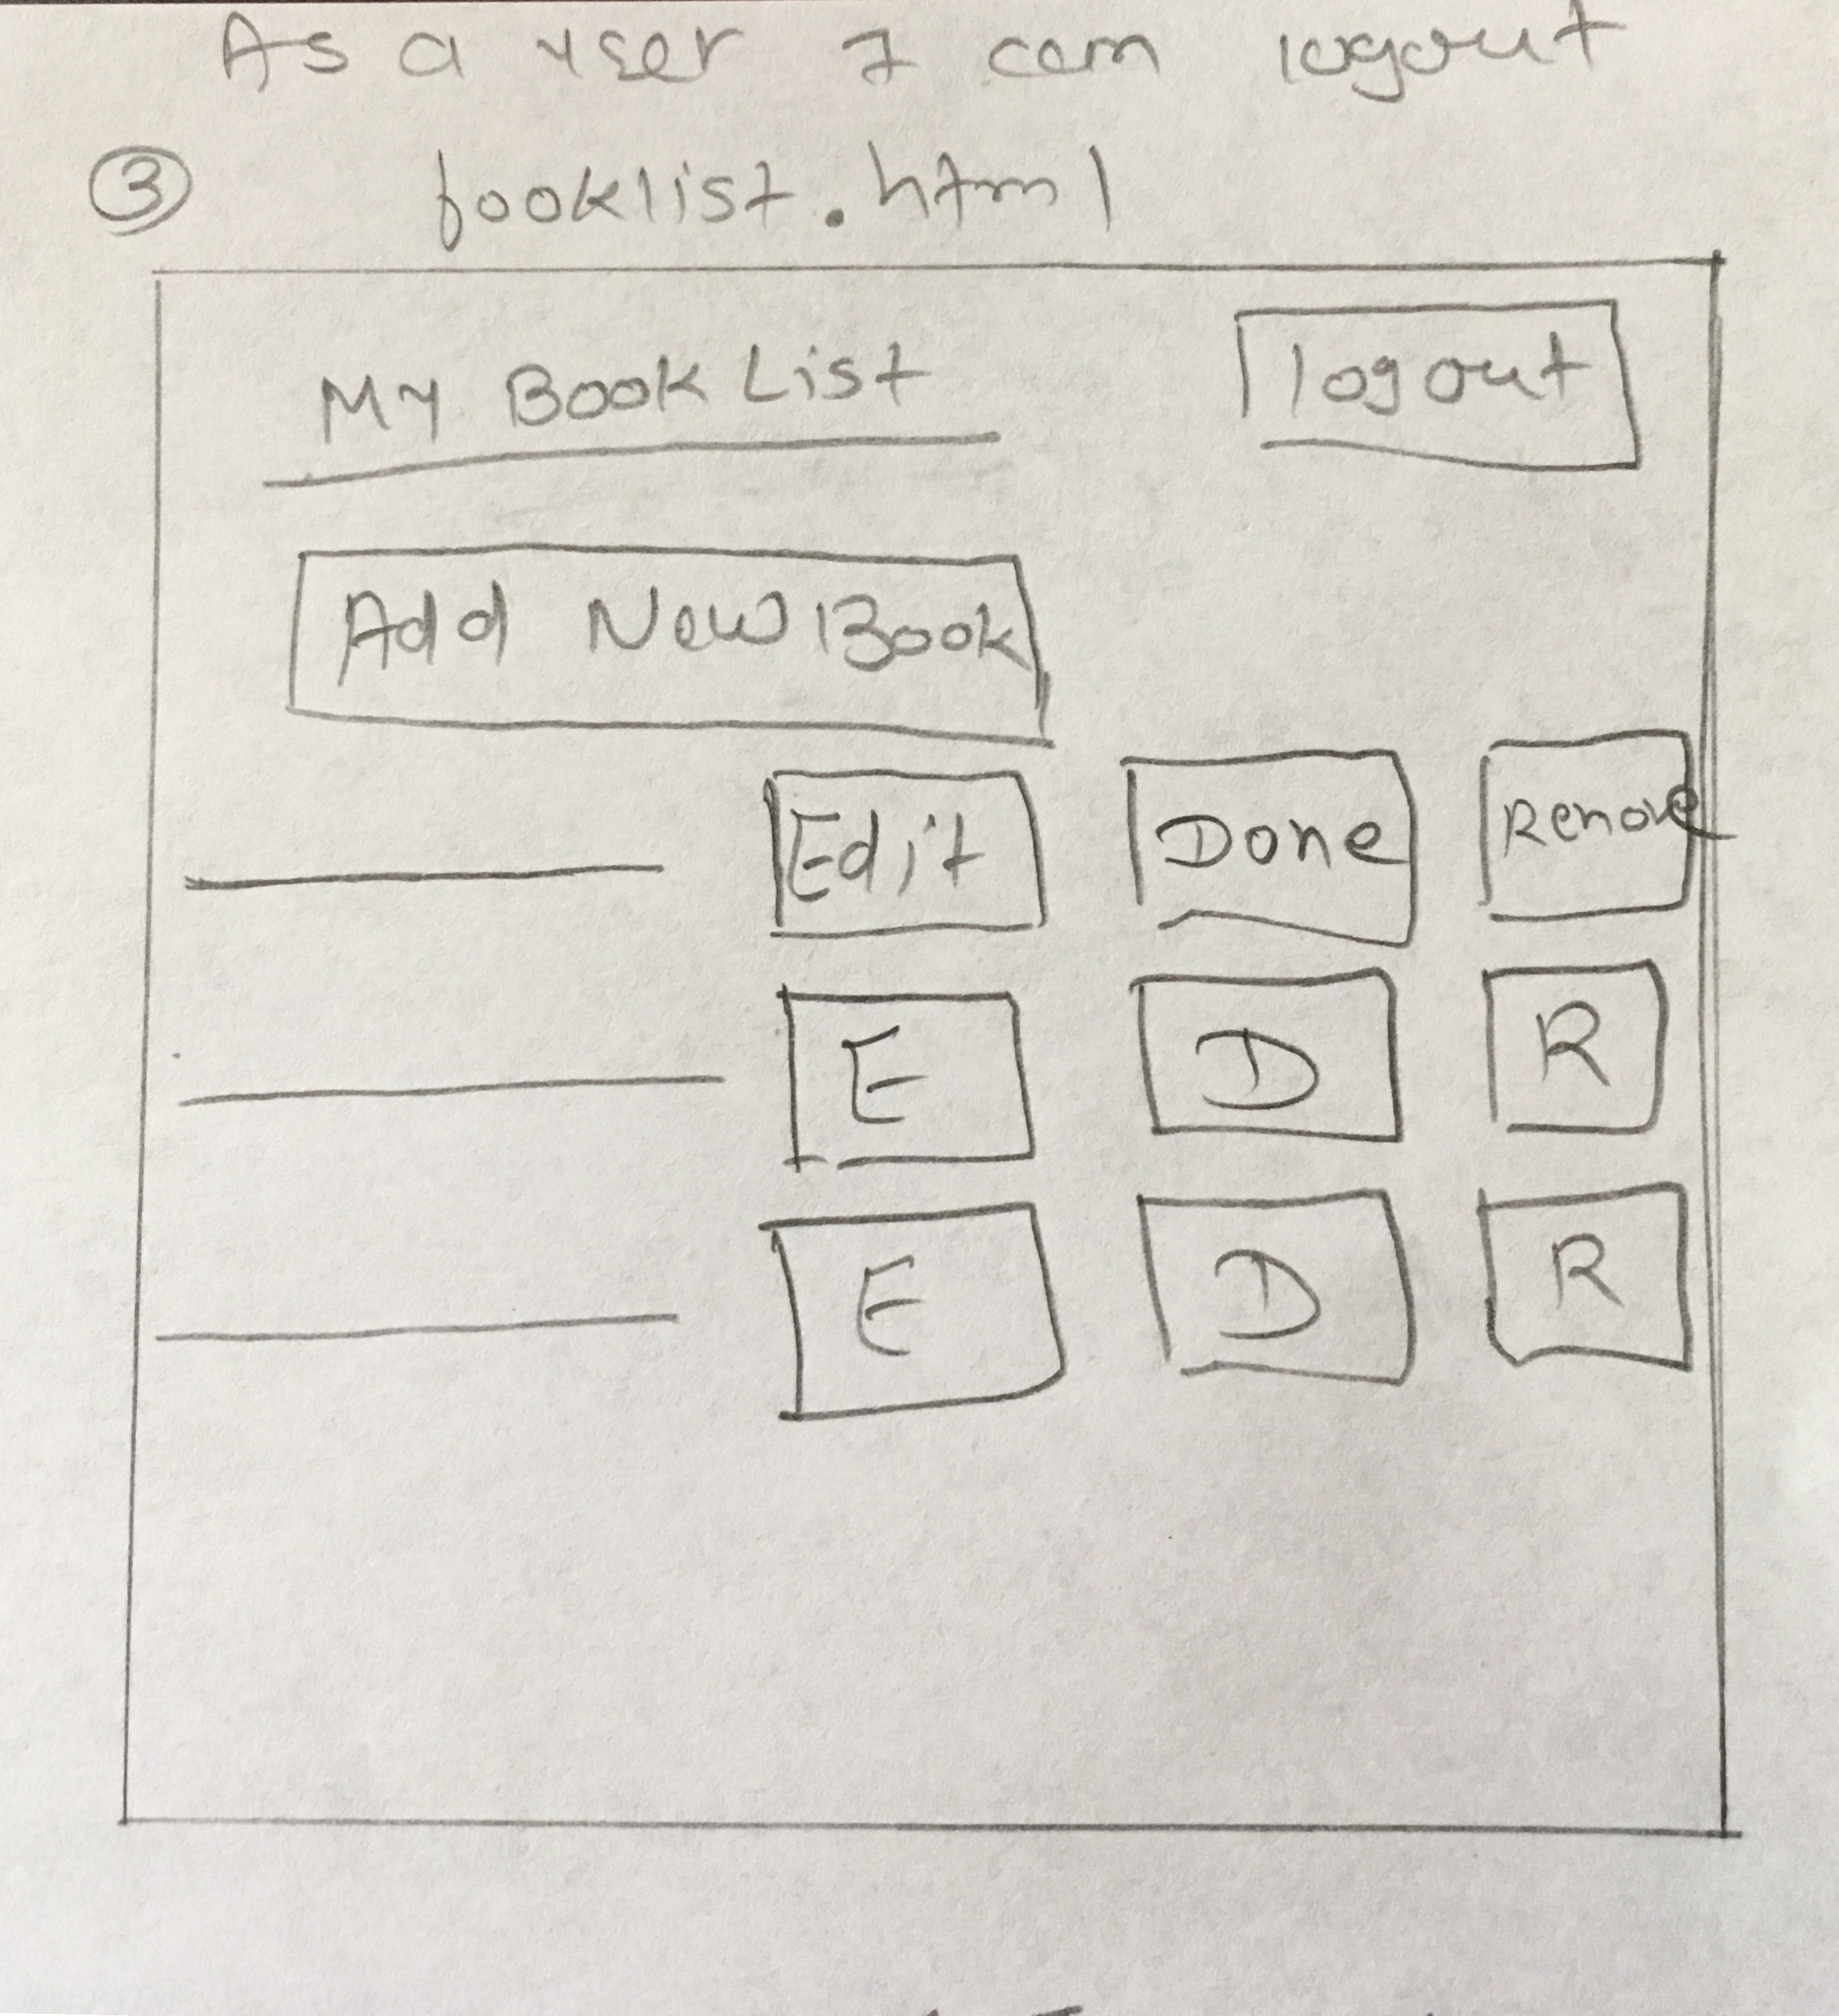 As a user I can logout
3 booklist.html
My Book List logout
Add New Book
Edit Done Remove
E D R
E D R